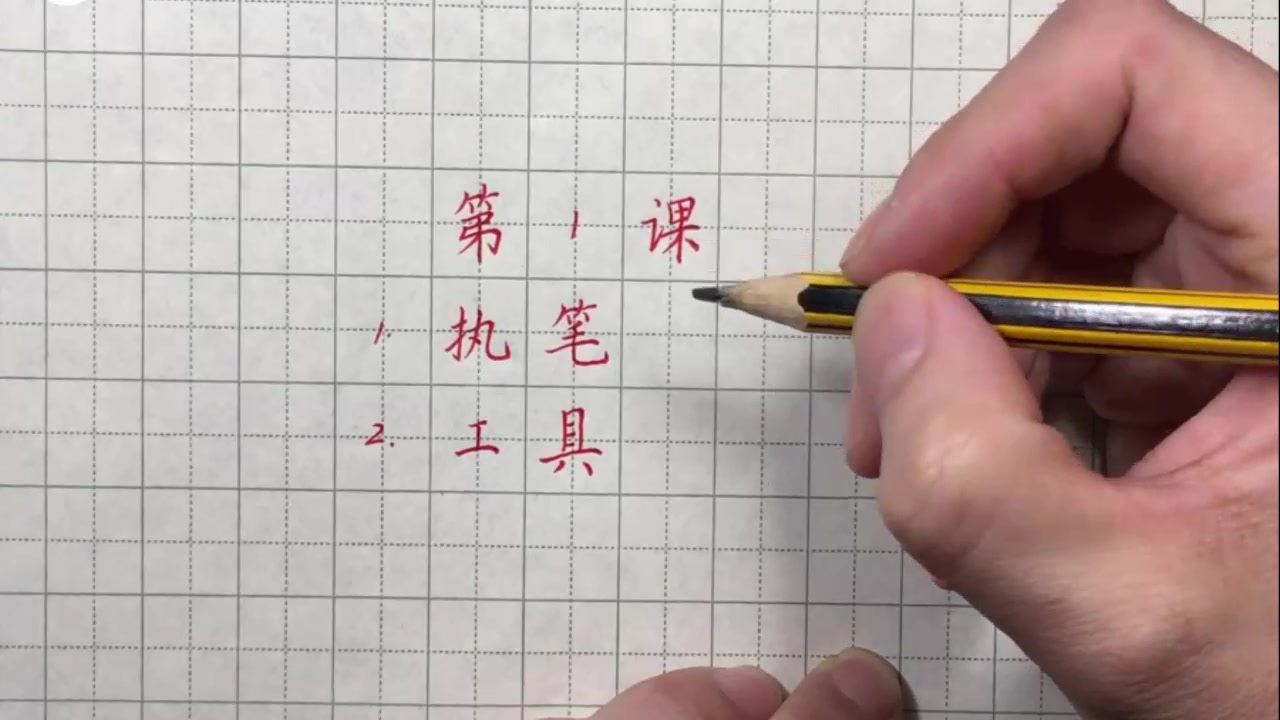 第1课
1. 执笔
2. 工具